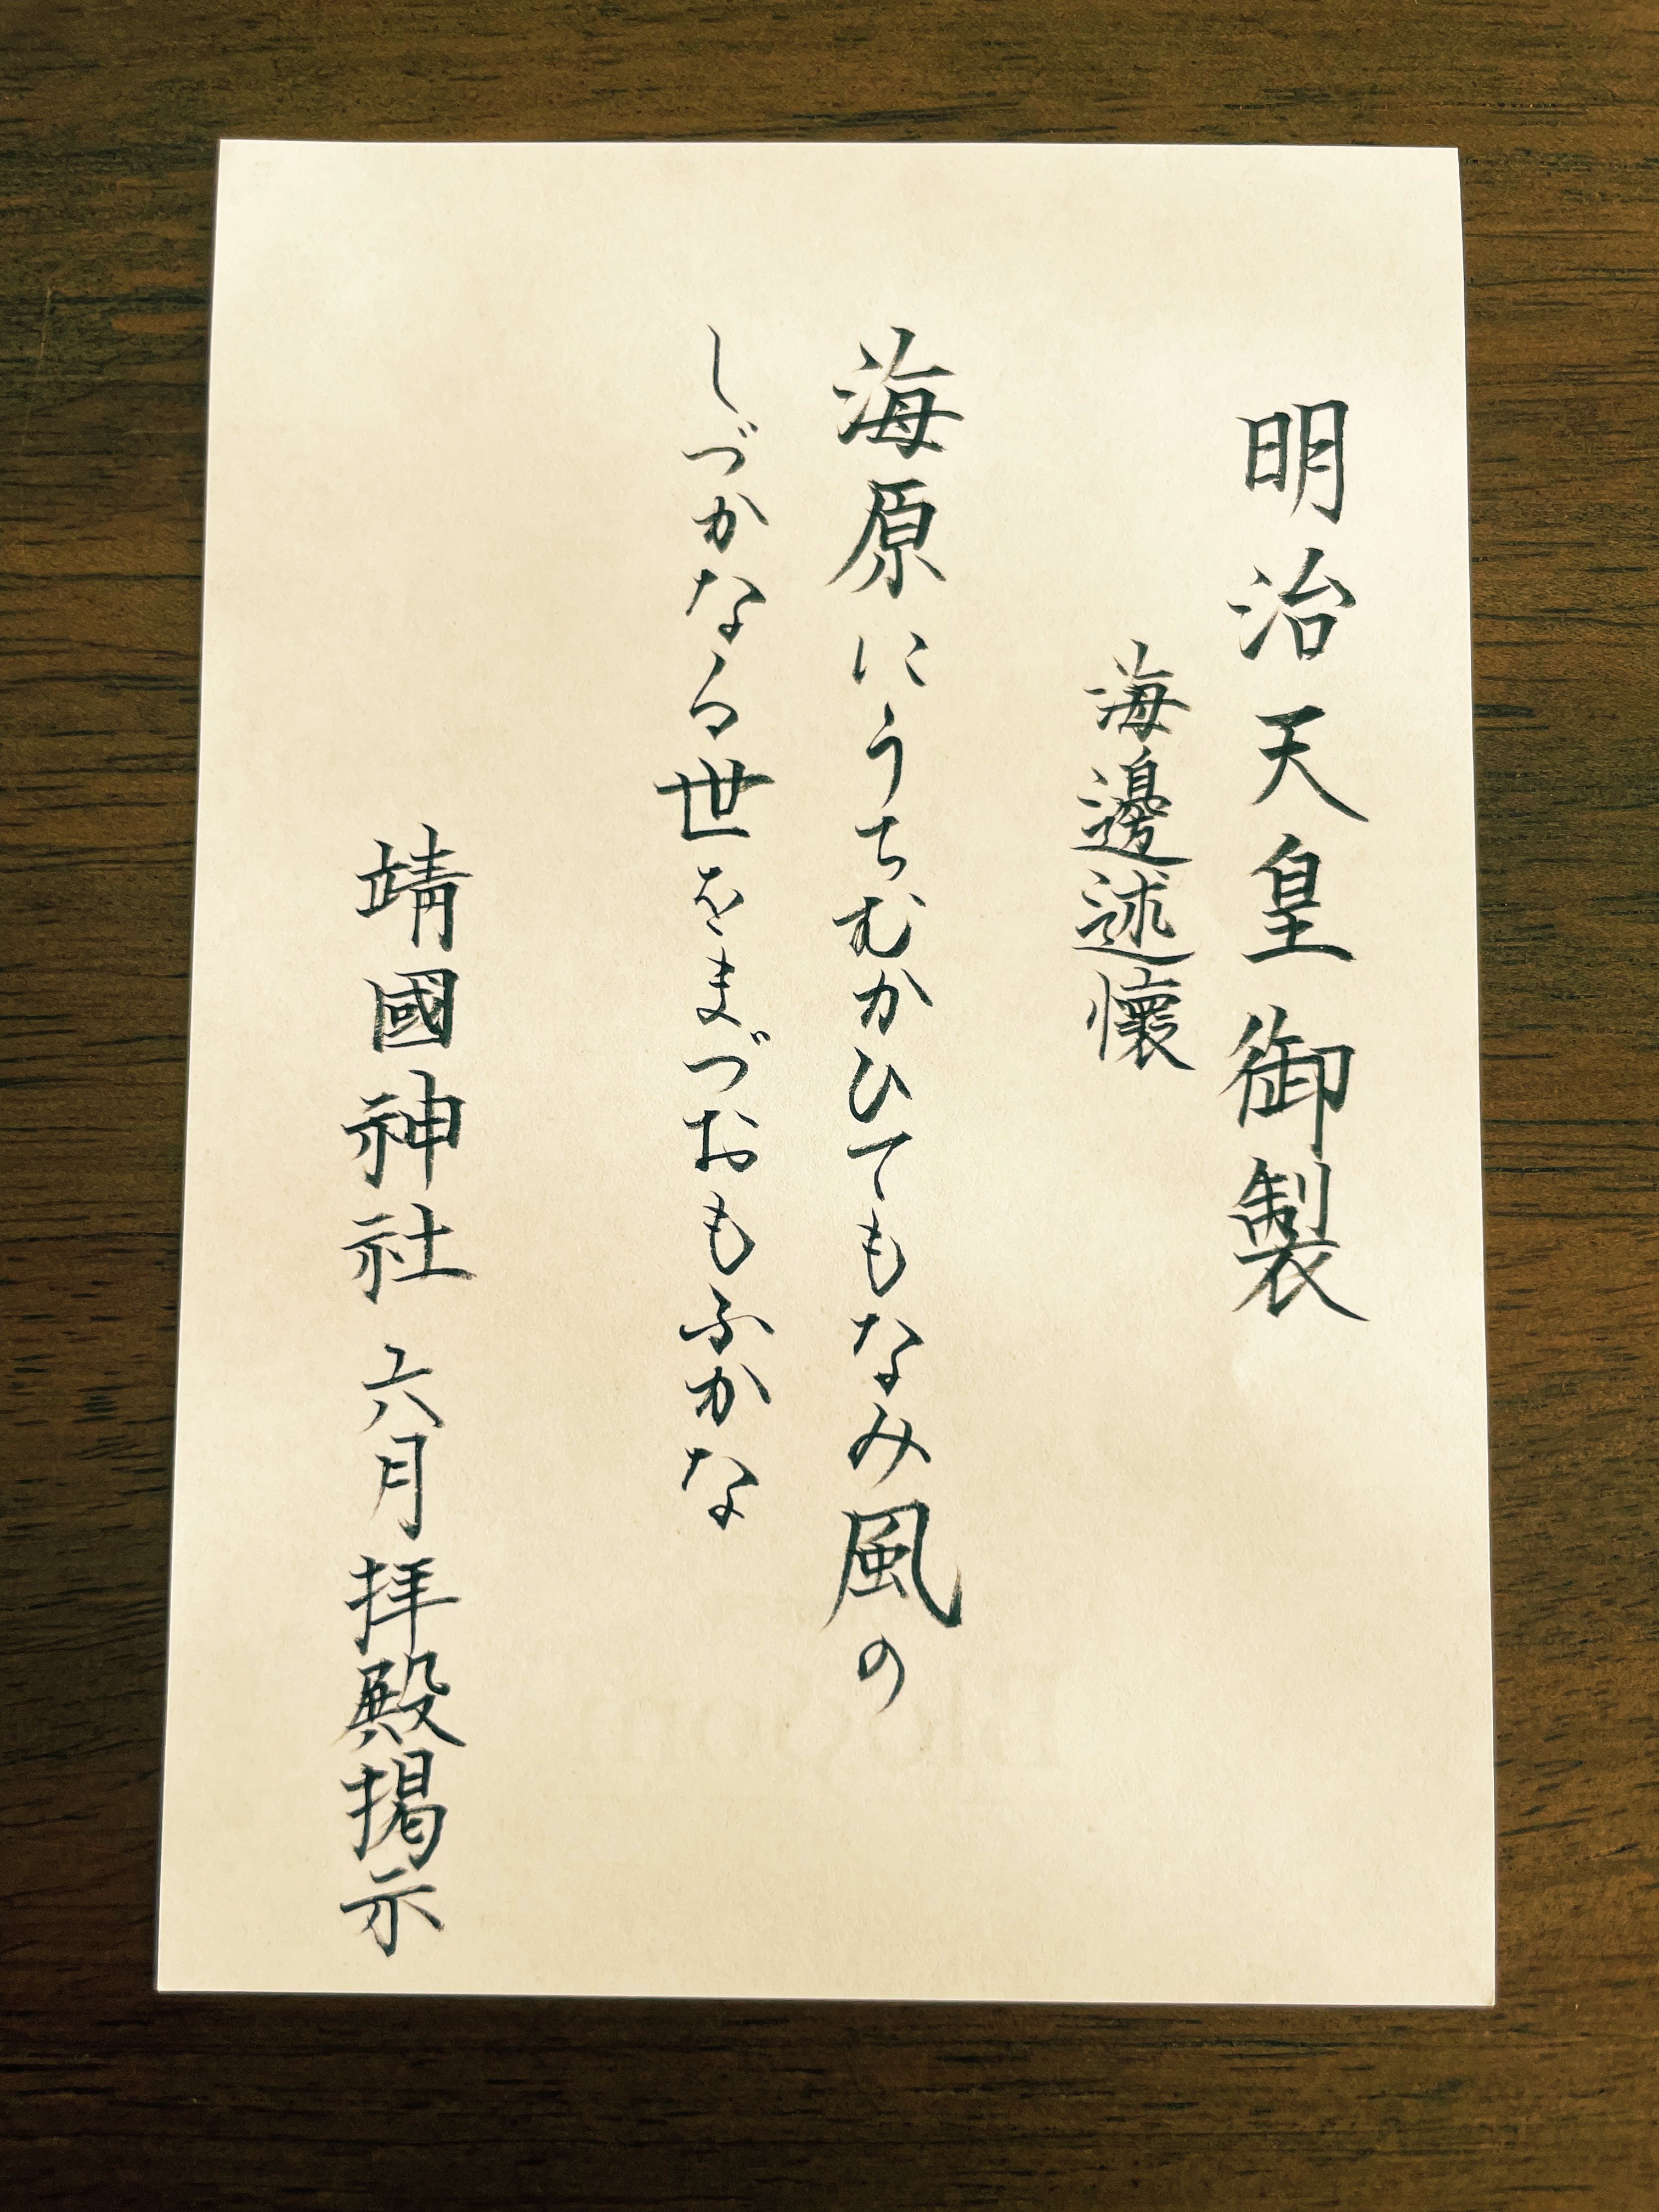 明治天皇御製
海邊述懷
海原にうちむかひてもなみ風の
しづかなる世をまづおもふかな
靖國神社 六月拝殿掲示